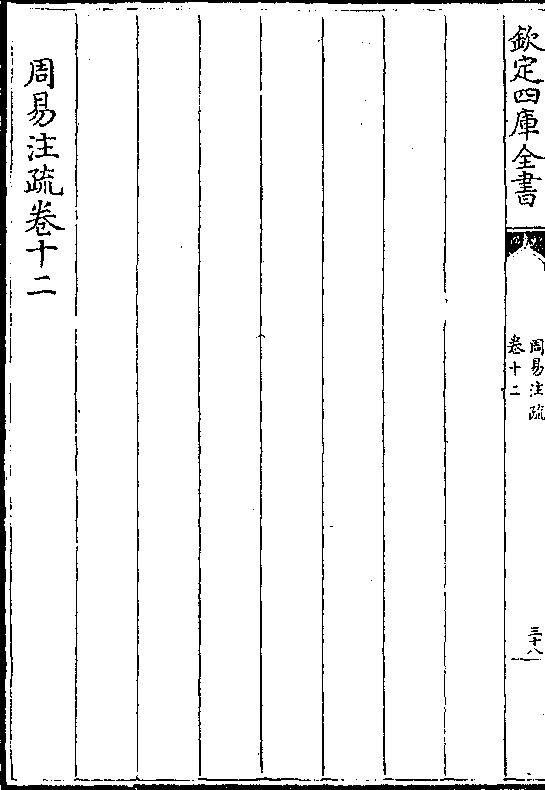 欽定四庫全書
周易注疏
卷十二
三十八
周易注疏卷十二